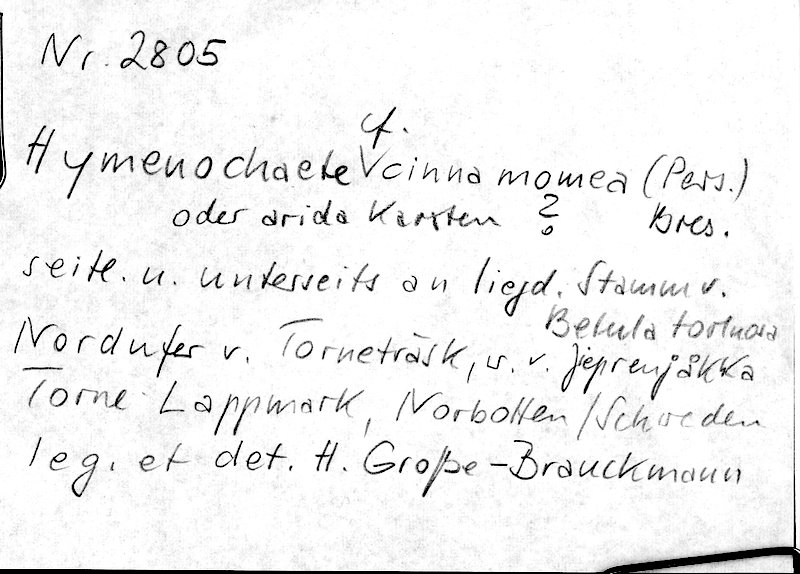 Nr. 2805
cf.
Hymenochaete cinnamomea (Pers.)
oder arida Karsten ? Bres.
seitl. u. unterseits an liegd. Stamm v.
Betula tortuosa
Nordufer v. Torneträsk, w. v. Jieprenjåkka
Torne Lappmark, Norbotten/Schweden
leg. et det. H. Große-Brauckmann